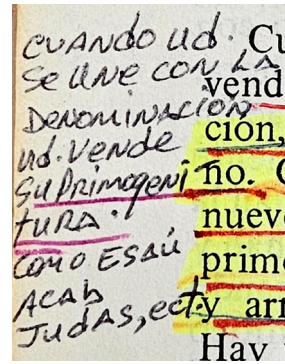 CUANDO ud.
Se UNE CON LA
DENOMINACIÓN
ud. VENDE
Su PRIMOGENI-
TURA.
COMO ESAÚ
ACAB
JUDAS, ect.
Cu
vend
ción,
no. C
nuevo
primo
y arr
Hay